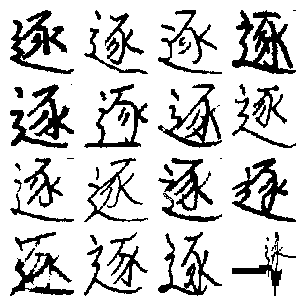 逐逐逐逐
逐逐逐逐
逐逐逐逐
逐逐逐